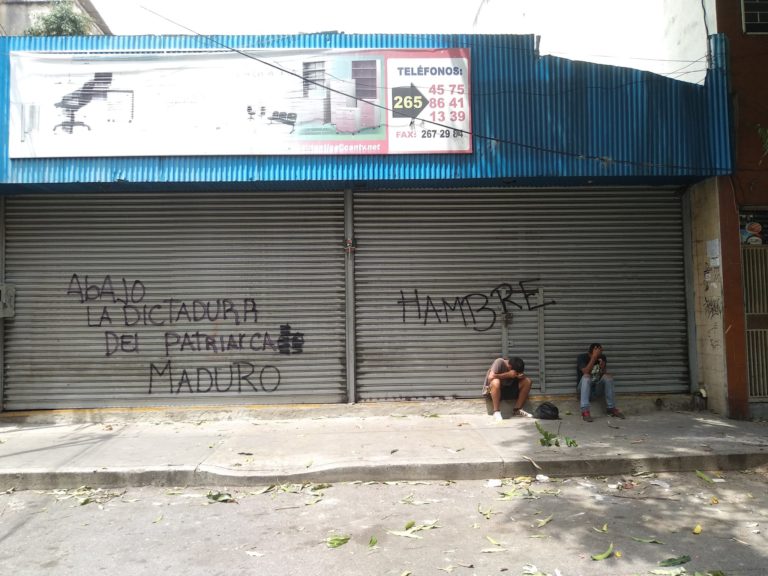 TELÉFONOS:
265
45 75
86 41
13 39
FAX: 267 29 84
ABAJO
LA DICTADURA
DEL PATRIARCA
MADURO
HAMBRE